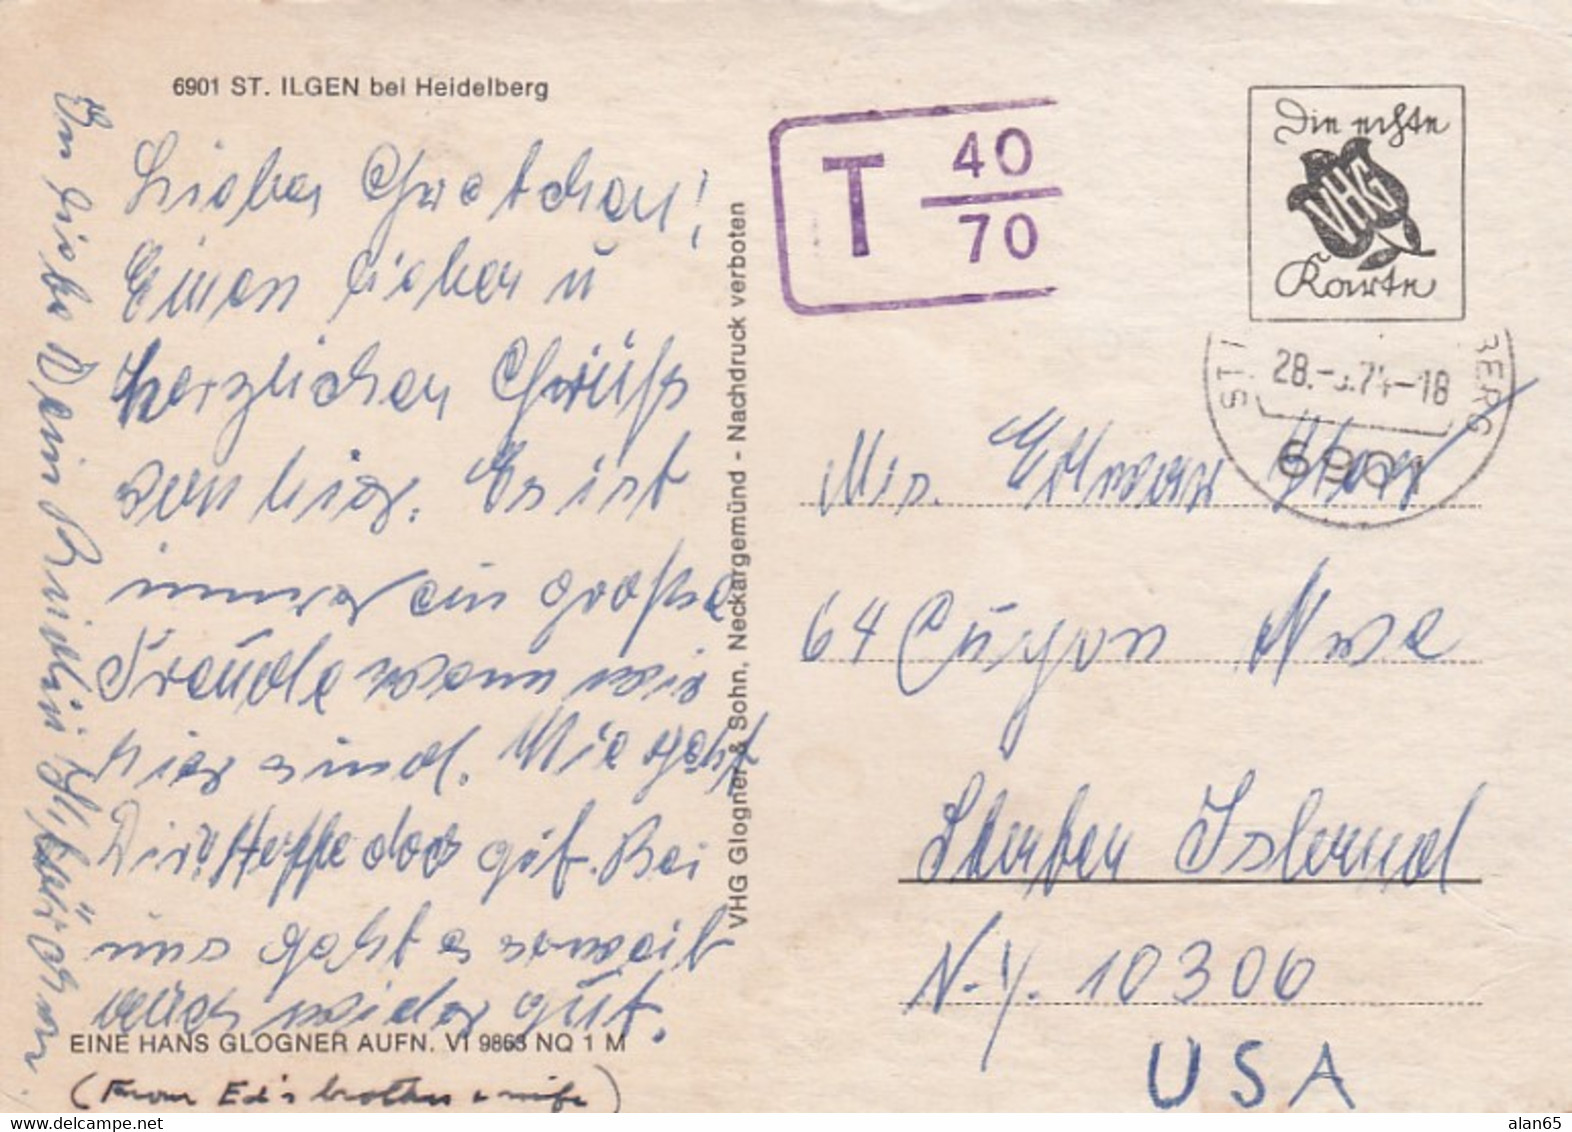 6901 ST. ILGEN bei Heidelberg
Liebes Gretchen!
Einen lieben u
herzlichen Grüß
von hier. Es ist
immer ein große
Freude wenn wir
hier sind. Wie geht
Dir? Hoffe doch gut. Bei
uns geht es soweit
auch wieder gut.
In Liebe Dein Bruder u
EINE HANS GLOGNER AUFN. VI 9863 NQ 1 M
(From Ed's brother & wife)
VHG Glogner & Sohn, Neckargemünd - Nachdruck verboten
T 40
70
Die echte
VHG
Karte
28.-5.74-18
6901
BERG
Mrs. Edward
64
Staten Island
N.Y. 10306
USA
delcampe.net
alan65